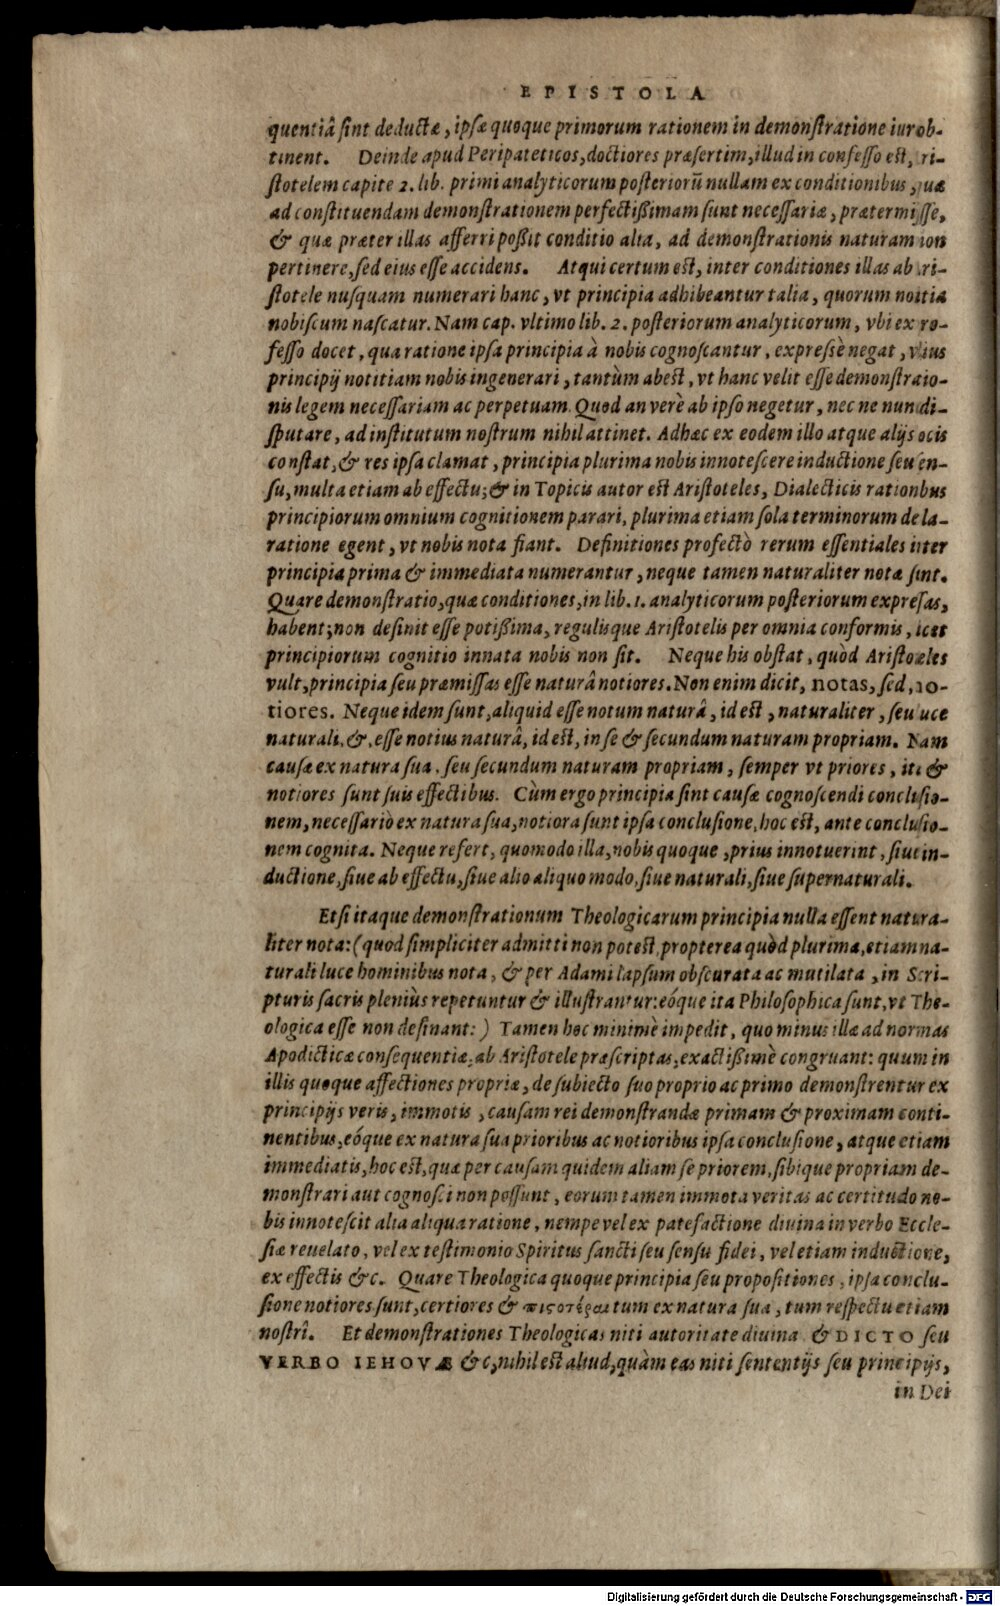 EPISTOLA
quentiâ sint deductæ, ipsæ quoque primorum rationem in demonstratione iur ob-
tinent. Deinde apud Peripateticos, doctiores præsertim, illud in confesso est, ri-
stotelem capite 2. lib. primi analyticorum posteriorũ nullam ex conditionibus, uæ
ad constituendam demonstrationem perfectißimam sunt necessariæ, prætermisse,
& quæ præter illas afferri poßit conditio alia, ad demonstrationis naturam ion
pertinere, sed eius esse accidens. Atqui certum est, inter conditiones illas ab ri-
stotele nusquam numerari hanc, vt principia adhibeantur talia, quorum noitia
nobiscum nascatur. Nam cap. vltimo lib. 2. posteriorum analyticorum, vbi ex ro-
fesso docet, qua ratione ipsa principia à nobis cognoscantur, expresse negat, vlius
principij notitiam nobis ingenerari, tantùm abest, vt hanc velit esse demonstraio-
nis legem necessariam ac perpetuam. Quod an verè ab ipso negetur, nec ne nun di-
sputare, ad institutum nostrum nihil attinet. Adhæc ex eodem illo atque alijs ocis
constat, & res ipsa clamat, principia plurima nobis innotescere inductione seu en-
su, multa etiam ab effectu; & in Topicis autor est Aristoteles, Dialecticis rationbus
principiorum omnium cognitionem parari, plurima etiam sola terminorum dela-
ratione egent, vt nobis nota fiant. Definitiones profectò rerum essentiales iter
principia prima & immediata numerantur, neque tamen naturaliter notæ sint.
Quare demonstratio, quæ conditiones, in lib. 1. analyticorum posteriorum expresas,
habent; non desinit esse potißima, regulisque Aristotelis per omnia conformis, icet
principiorum cognitio innata nobis non sit. Neque his obstat, quòd Aristoteles
vult, principia seu præmissas esse naturâ notiores. Non enim dicit, notas, sed, no-
tiores. Neque idem sunt, aliquid esse notum naturâ, id est, naturaliter, seu uce
naturali, &, esse notius naturâ, id est, in se & secundum naturam propriam. Nam
causæ ex natura sua, seu secundum naturam propriam, semper vt priores, ita &
notiores sunt suis effectibus. Cùm ergo principia sint causæ cognoscendi conclusio-
nem, necessariò ex natura sua, notiora sunt ipsa conclusione, hoc est, ante conclusio-
nem cognita. Neque refert, quomodo illa, nobis quoque, prius innotuerint, siue in-
ductione, siue ab effectu, siue alio aliquo modo, siue naturali, siue supernaturali.
Etsi itaque demonstrationum Theologicarum principia nulla essent natura-
liter nota: (quod simpliciter admitti non potest, propterea quòd plurima, etiam na-
turali luce hominibus nota, & per Adami lapsum obscurata ac mutilata, in Scri-
pturis sacris pleniùs repetuntur & illustrantur: eóque ita Philosophica sunt, vt The-
ologica esse non desinant:) Tamen hoc minimè impedit, quo minus illæ ad normas
Apodicticæ consequentiæ, ab Aristotele præscriptas, exactißimè congruant: quum in
illis quoque affectiones propriæ, de subiecto suo proprio ac primo demonstrentur ex
principijs veris, immotis, causam rei demonstrandæ primam & proximam conti-
nentibus, eóque ex natura sua prioribus ac notioribus ipsa conclusione, atque etiam
immediatis, hoc est, quæ per causam quidem aliam se priorem, sibique propriam de-
monstrari aut cognosci non possunt, eorum tamen immota veritas ac certitudo no-
bis innotescit alia aliqua ratione, nempe vel ex patefactione diuina in verbo Eccle-
siæ reuelato, vel ex testimonio Spiritus sancti seu sensu fidei, vel etiam inductione,
ex effectis &c. Quare Theologica quoque principia seu propositiones, ipsa conclu-
sione notiores sunt, certiores & πιςοτέραι tum ex natura sua, tum respectu etiam
nostrî. Et demonstrationes Theologicas niti autoritate diuina & DICTO seu
VERBO IEHOVÆ &c, nihil est aliud, quàm eas niti sententijs seu principijs,
in Dei
Digitalisierung gefördert durch die Deutsche Forschungsgemeinschaft - DFG